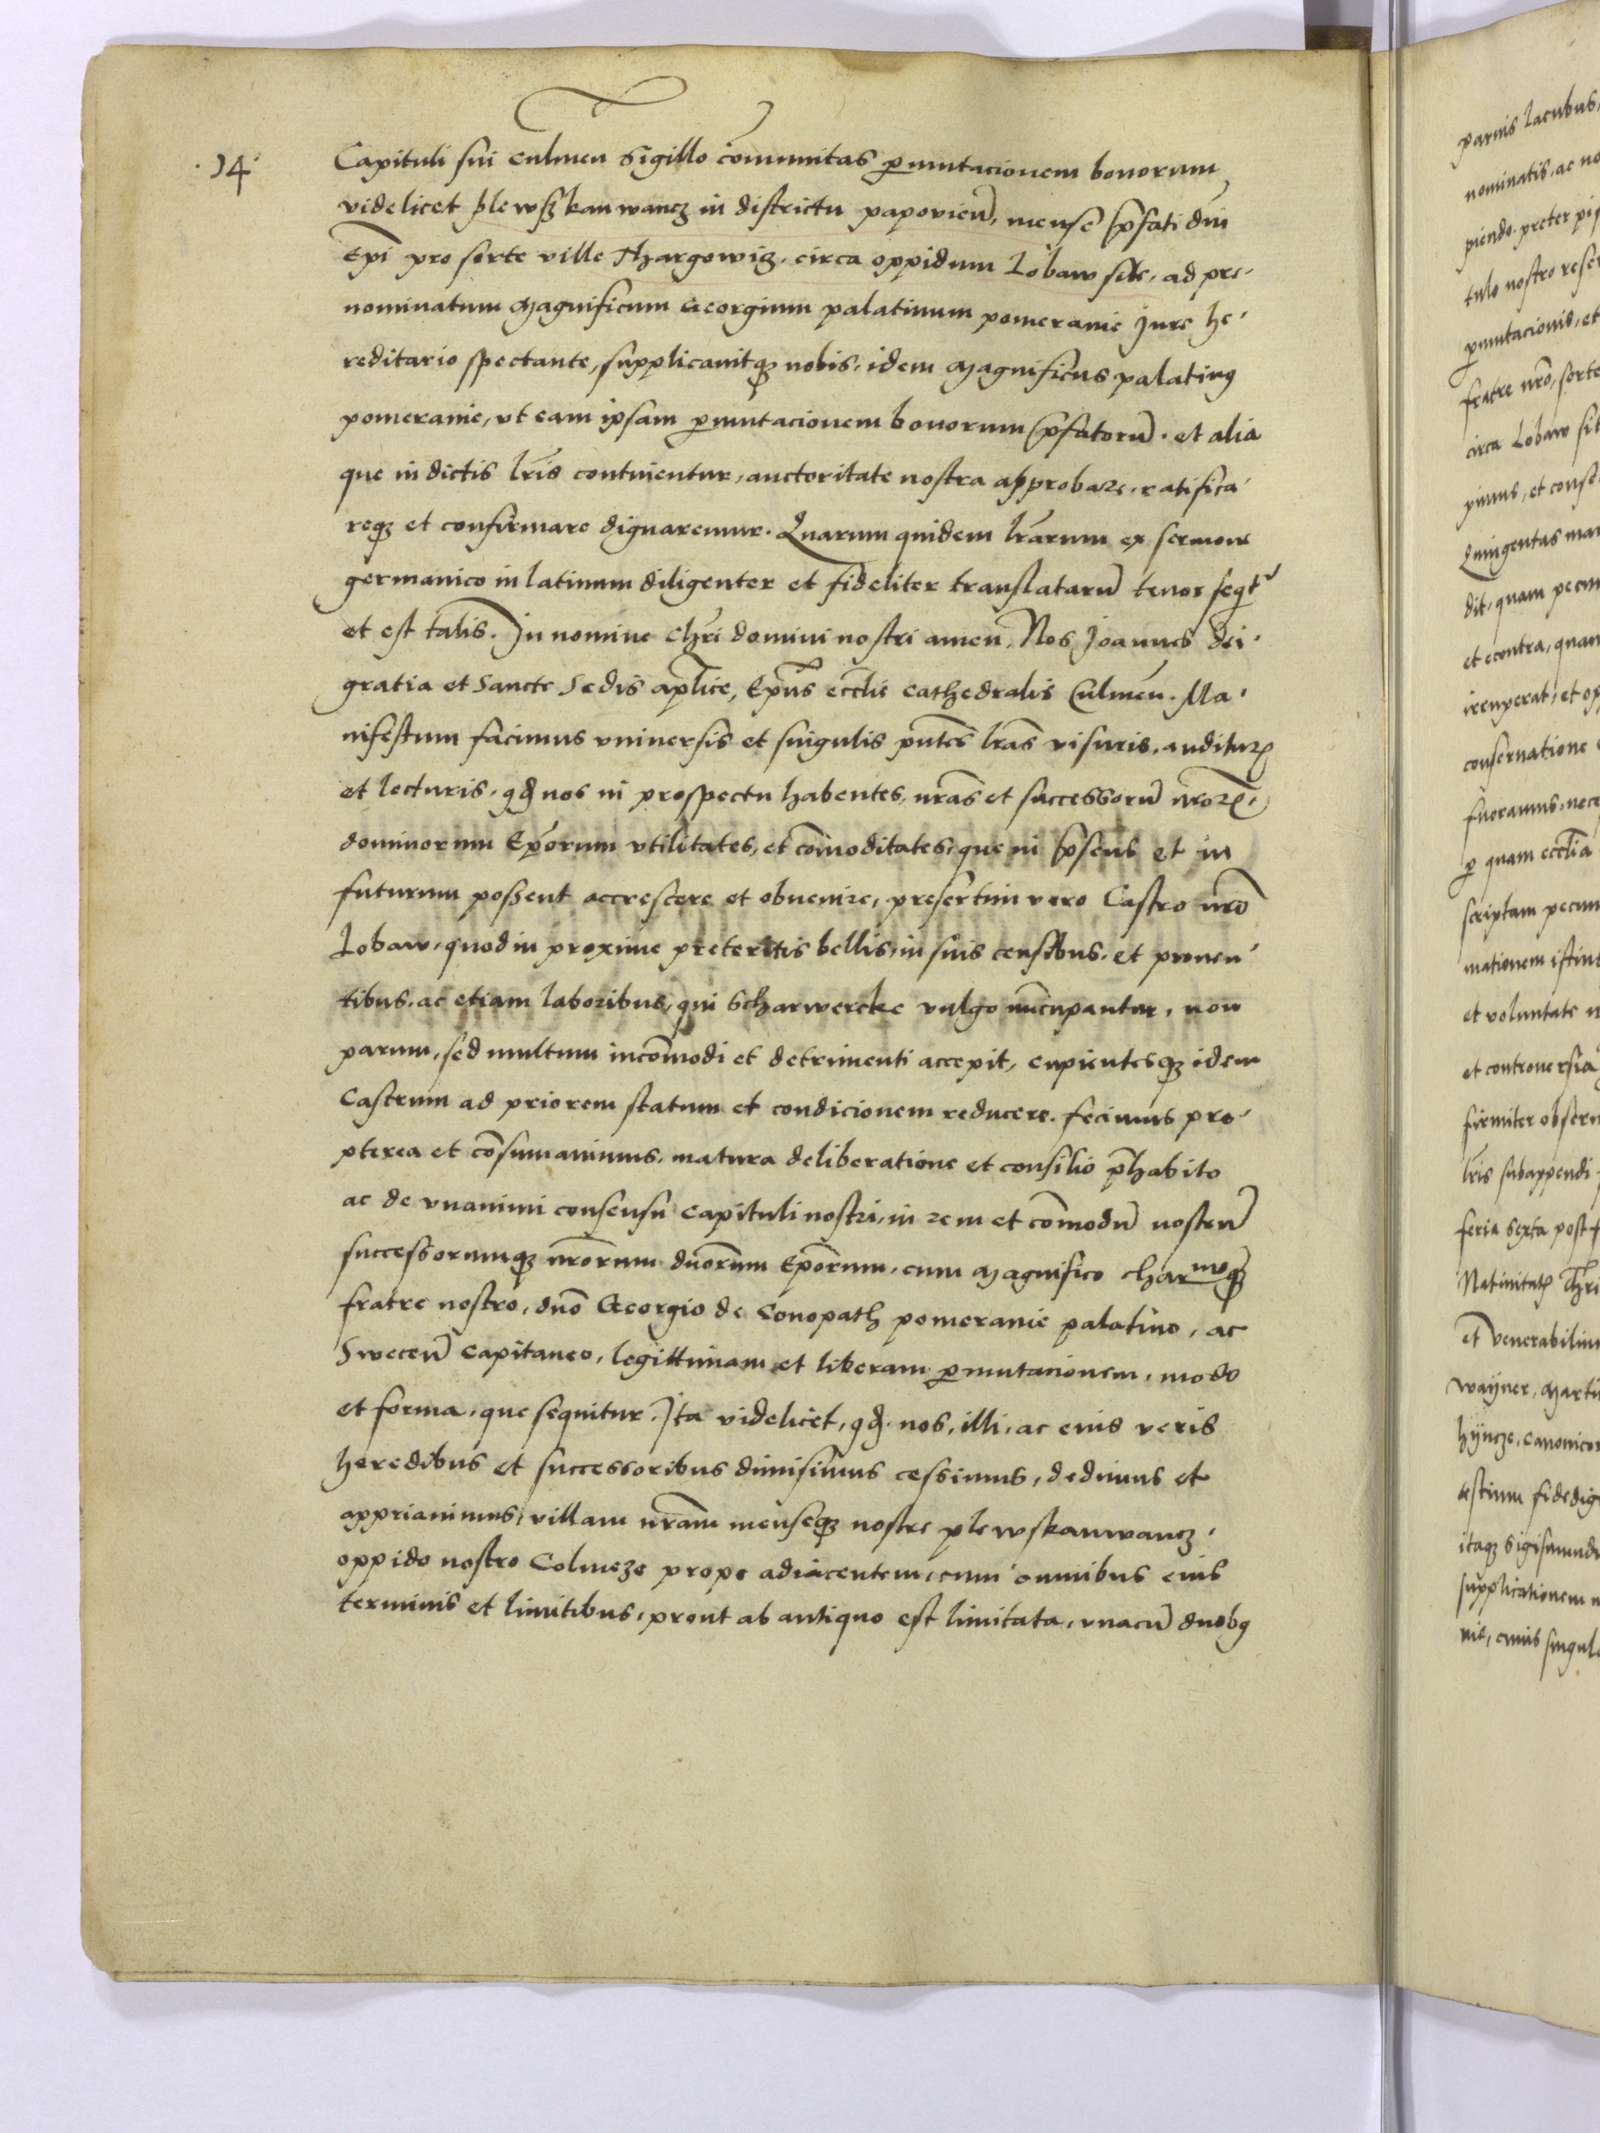 .14.
Capituli sui culmeñ sigillo com̄unitas ꝑmutacionem bonorum
videlicet plewßkanwancz in districtu papovieñ, mense p̄fati dn̄i
Ep̄i pro sorte ville Thargowiz, circa oppidum Lobaw site, ad pre-
nominatum Magnificum Georgium palatinum pomeranie Jure he-
reditario spectante, supplicauitqꝫ nobis, idem Magnificus palatinꝰ
pomeranie, vt eam ipsam ꝑmutacionem bonorum p̄fatorū. et alia
que in dictis lr̄is continentur, auctoritate nostra approbare, ratifica-
reqꝫ et confirmare dignaremur. Quarum quidem lr̄arum ex sermone
germanico in latinum diligenter et fideliter translatarū tenor seqt̄r
et est talis. In nomine Chr̄i domini nostri amen. Nos Joannes dei
gratia et Sancte Sedis aplīce, Ep̄us eccl̄ie cathedralis Culmeñ. Ma-
nifestum facimus vniuersis et singulis p̄ntes lr̄as visuris, auditurꝭ
et lecturis, qđ nos in prospectu habentes, nr̄as et successorū nr̄oꝝ,
dominorum Ep̄orum vtilitates, et com̄oditates, que in p̄sens et in
futurum possent accrescere et obuenire, presertim vero Castro nr̄o
Lobaw, quod in proxime preteritis bellis, in suis censibus, et prouen-
tibus, ac etiam laboribus, qui Scharwercke vulgo nūcupantur, non
parum, sed multum incom̄odi et detrimenti accepit, cupientesqꝫ idem
Castrum ad priorem statum et condicionem reducere. fecimus pro-
pterea et cōsumauimus, matura deliberatione et consilio p̄habito
ac de vnanimi consensu Capituli nostri, in rem et com̄odū nostrū
successorumqꝫ nr̄orum dn̄orum Ep̄orum, cum Magnifico charmoqꝫ
fratre nostro, dn̄o Georgio de Conopath pomeranie palatino, ac
Sweceñ Capitaneo, legittimam et liberam ꝑmutacionem, modo
et forma, que sequitur. Ita videlicet, qđ nos, illi, ac eius veris
heredibus et successoribus dimisimus cessimus, dedimus et
appriauimus, villam nr̄am menseqꝫ nostre plewskanwancz,
oppido nostro Colmeze prope adiacentem, cum omnibus eius
terminis et limitibus, prout ab antiquo est limitata, vnacū duobꝰ
paruis lacubus,
nominatis, ac no
piendo. preter pis
tulo nostro reser
ꝑmutacionis, et
fratre nr̄o, sorte
circa Lobaw sit
pimus, et conse
Quingentas mar
dit, quam pecun
et econtra, quam
conseruatione
ꝑ quam eccl̄ia
scriptam pecun
mationem istius
et voluntate n
et controuersia
firmiter obseru
lr̄is subappendi
feria sexta post f
Natiuitatꝭ Chr̄i
et Venerabilium
wayner, Marti
hyncze, Canonicor
testium fidedig
itaqꝫ Sigismundu
supplicationem n
nie, cuius singula